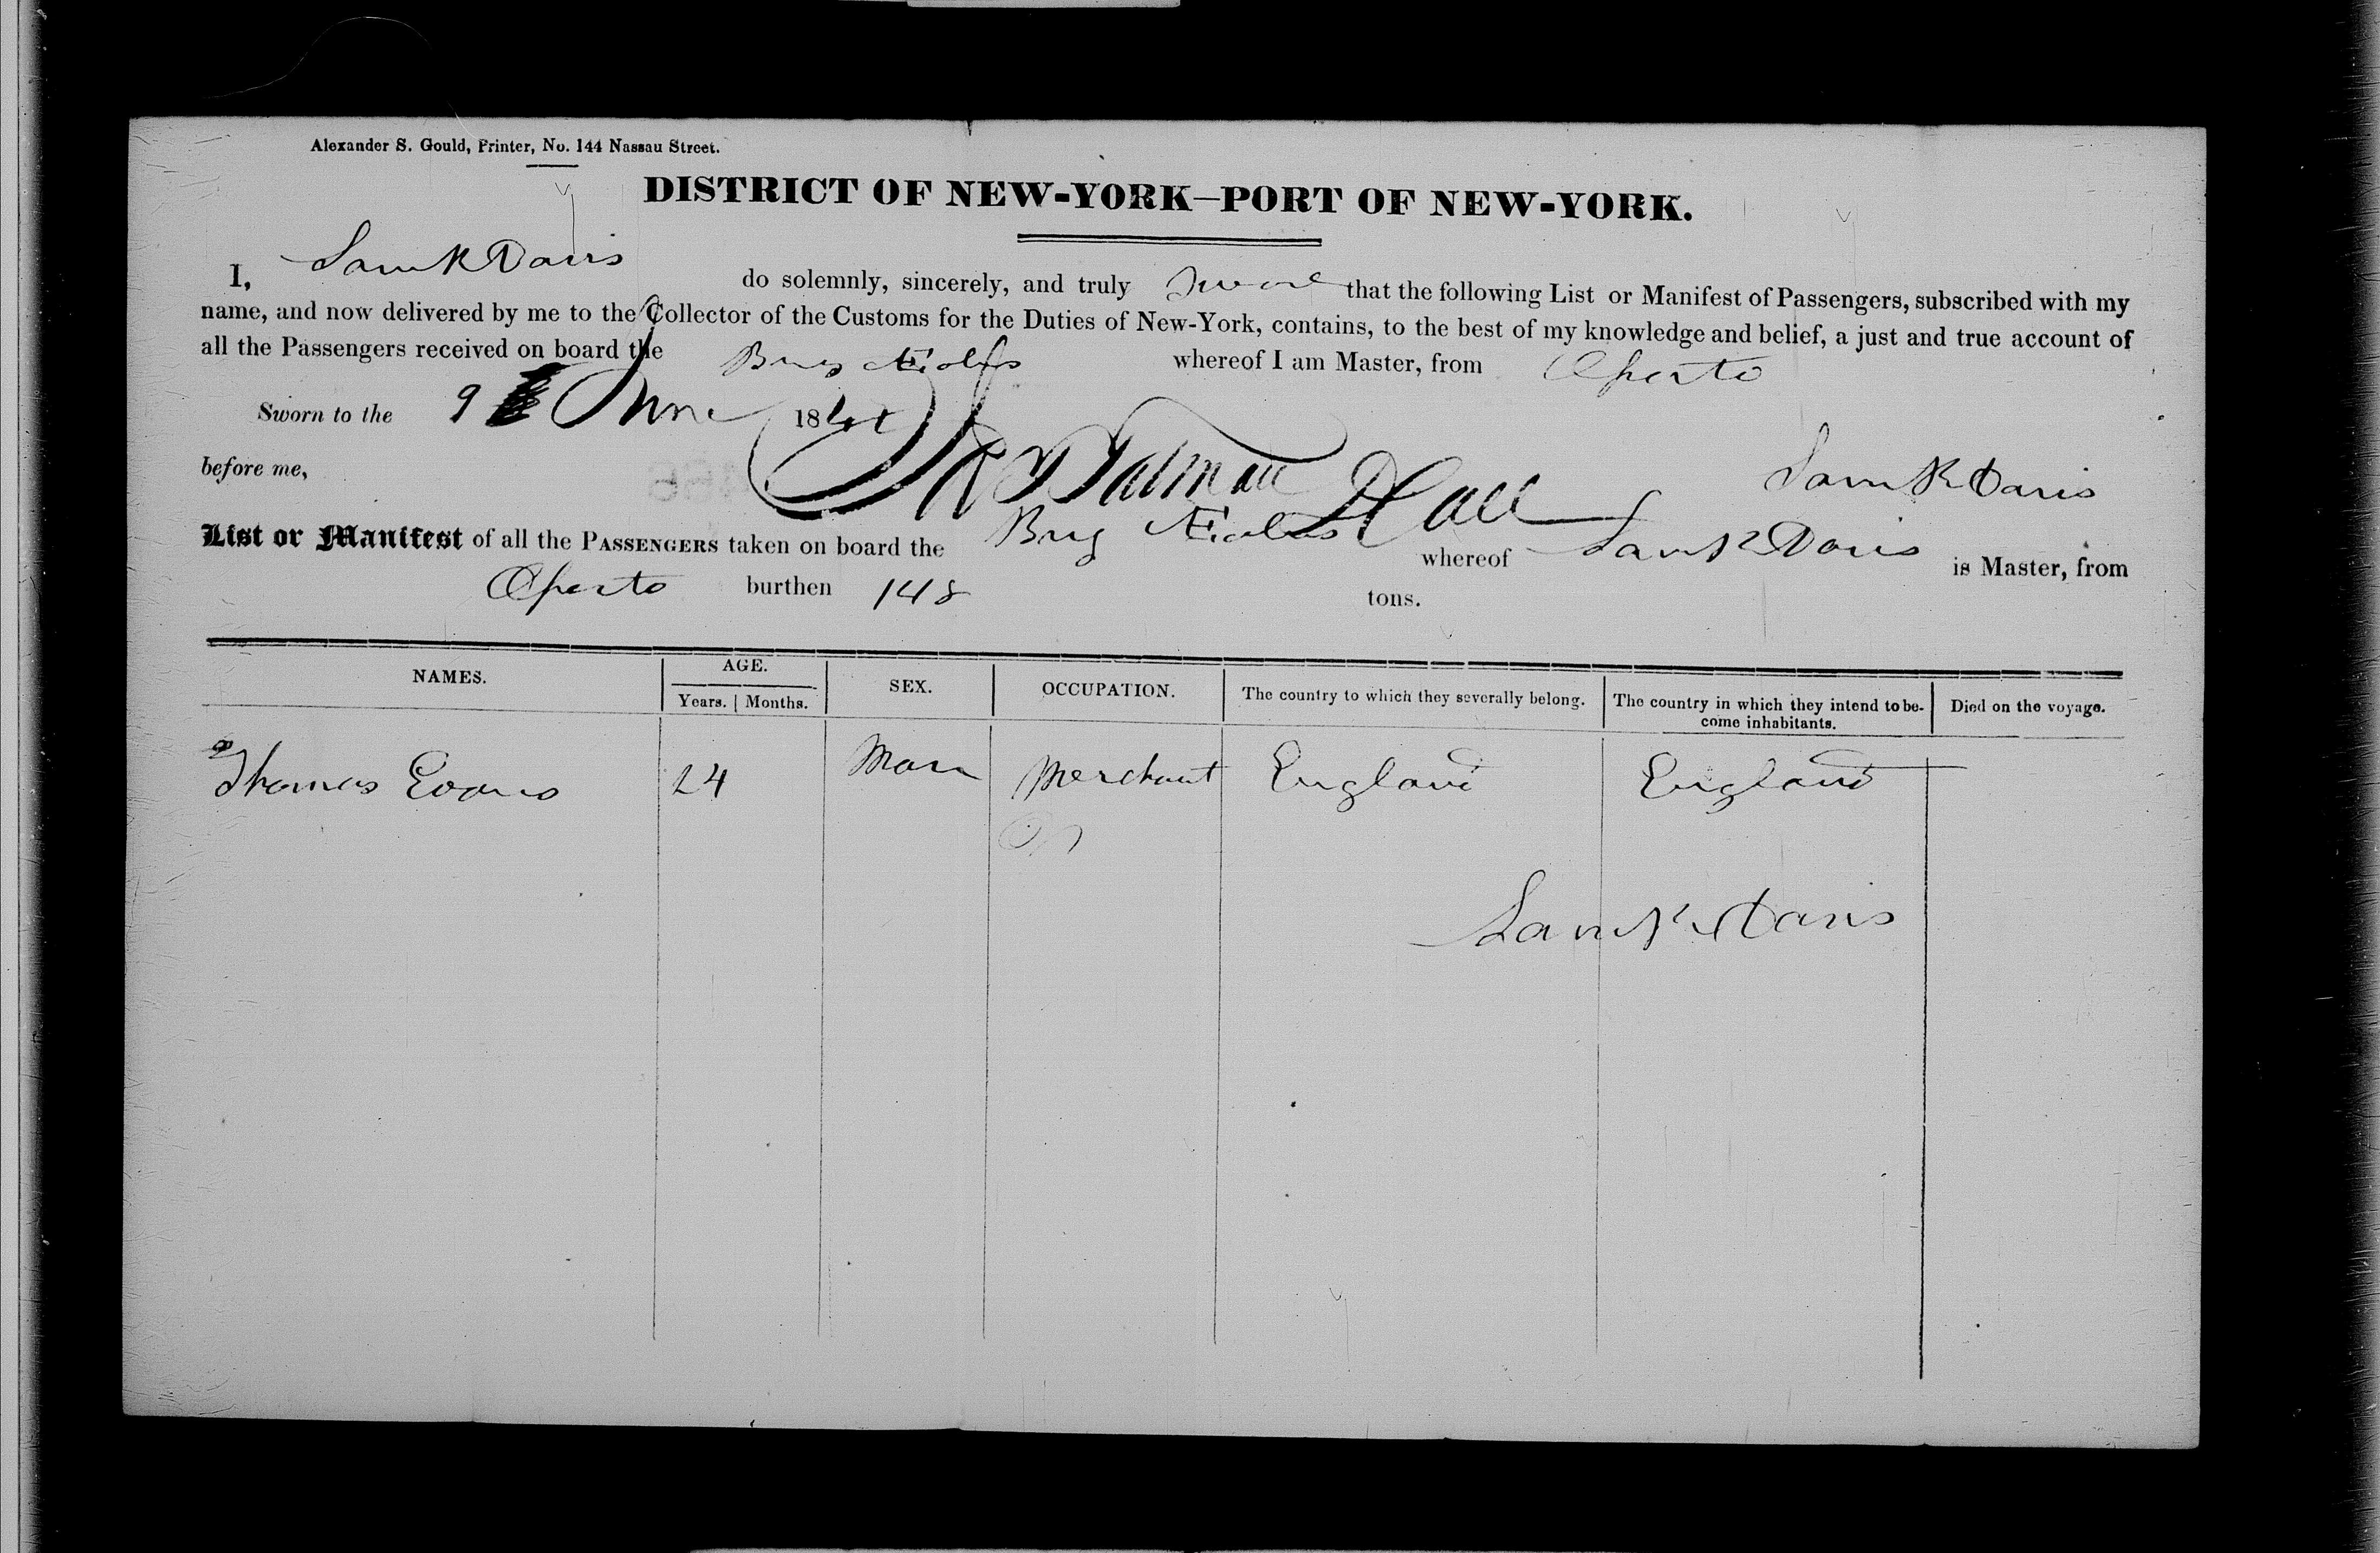 Alexander S. Gould, Printer, No. 144 Nassau Street.
DISTRICT OF NEW-YORK—PORT OF NEW-YORK.
I, Saml R Davis do solemnly, sincerely, and truly Swear that the following List or Manifest of Passengers, subscribed with my
name, and now delivered by me to the Collector of the Customs for the Duties of New-York, contains, to the best of my knowledge and belief, a just and true account of
all the Passengers received on board the Brig whereof I am Master, from Oporto
Sworn to the 9 June 184
before me, Talman Saml R Davis
List or Manifest of all the PASSENGERS taken on board the Brig whereof Saml R Davis is Master, from
Oporto burthen 148 tons.
NAMES. AGE. SEX. OCCUPATION. The country to which they severally belong. The country in which they intend to be- Died on the voyage.
Years. Months. come inhabitants.
Thomas Evans 24 Man Merchant England England
Saml R Davis